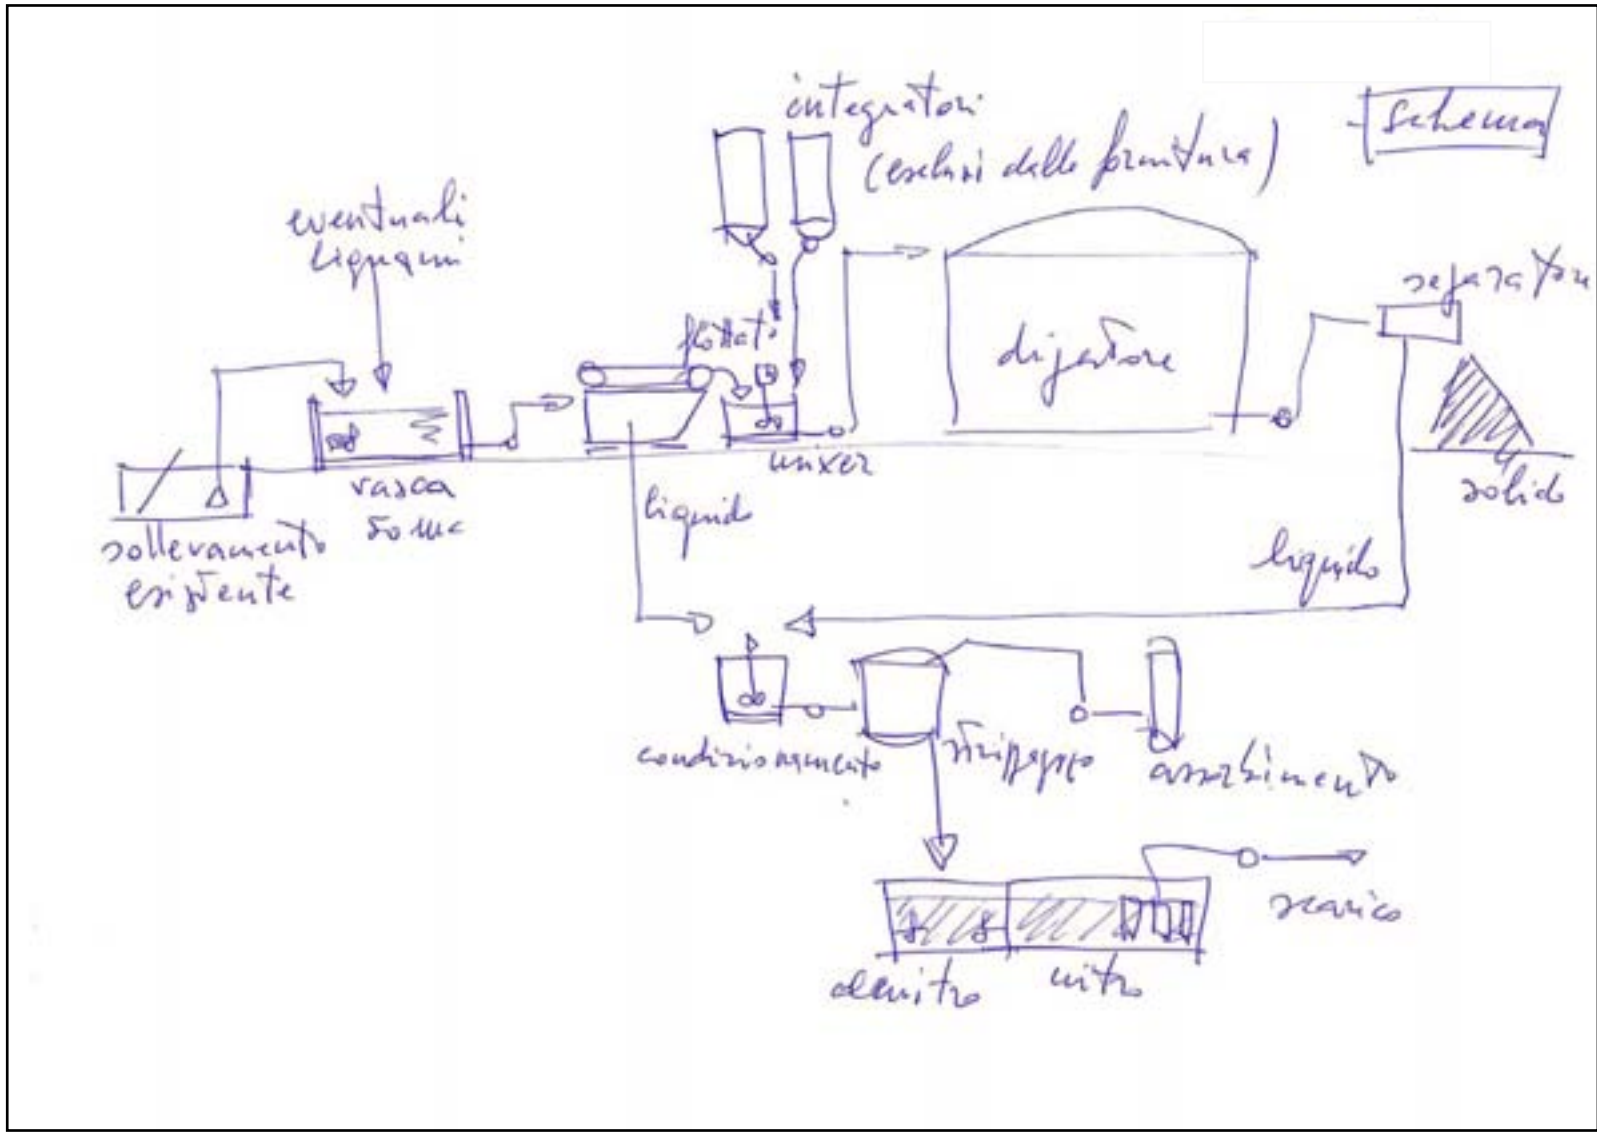 schema
integratori
(esclusi dalla fornitura)
eventuali
liquami
separatore
flottati
digestore
mixer
vasca
solido
sollevamento
esistente
liquido
liquido
condizionamento
strippaggio
assorbimento
scarico
denitro
nitro